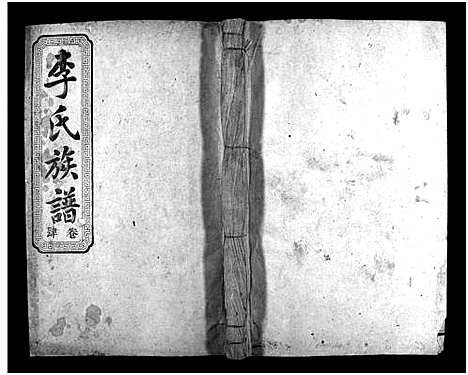 李氏族譜
卷肆